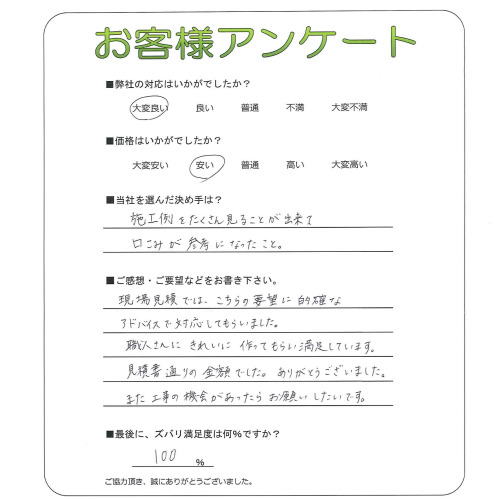 お客様アンケート
■弊社の対応はいかがでしたか？
大変良い 良い 普通 不満 大変不満
■価格はいかがでしたか？
大変安い 安い 普通 高い 大変高い
■当社を選んだ決め手は？
施工例をたくさん見ることが出来て
口こみが参考になったこと。
■ご感想・ご要望などをお書き下さい。
現場見積では、こちらの要望に的確な
アドバイスで対応してもらいました。
職人さんにきれいに作ってもらい満足しています。
見積書通りの金額でした。ありがとうございました。
また工事の機会があったらお願いしたいです。
■最後に、ズバリ満足度は何％ですか？
100 ％
ご協力頂き、誠にありがとうございました。